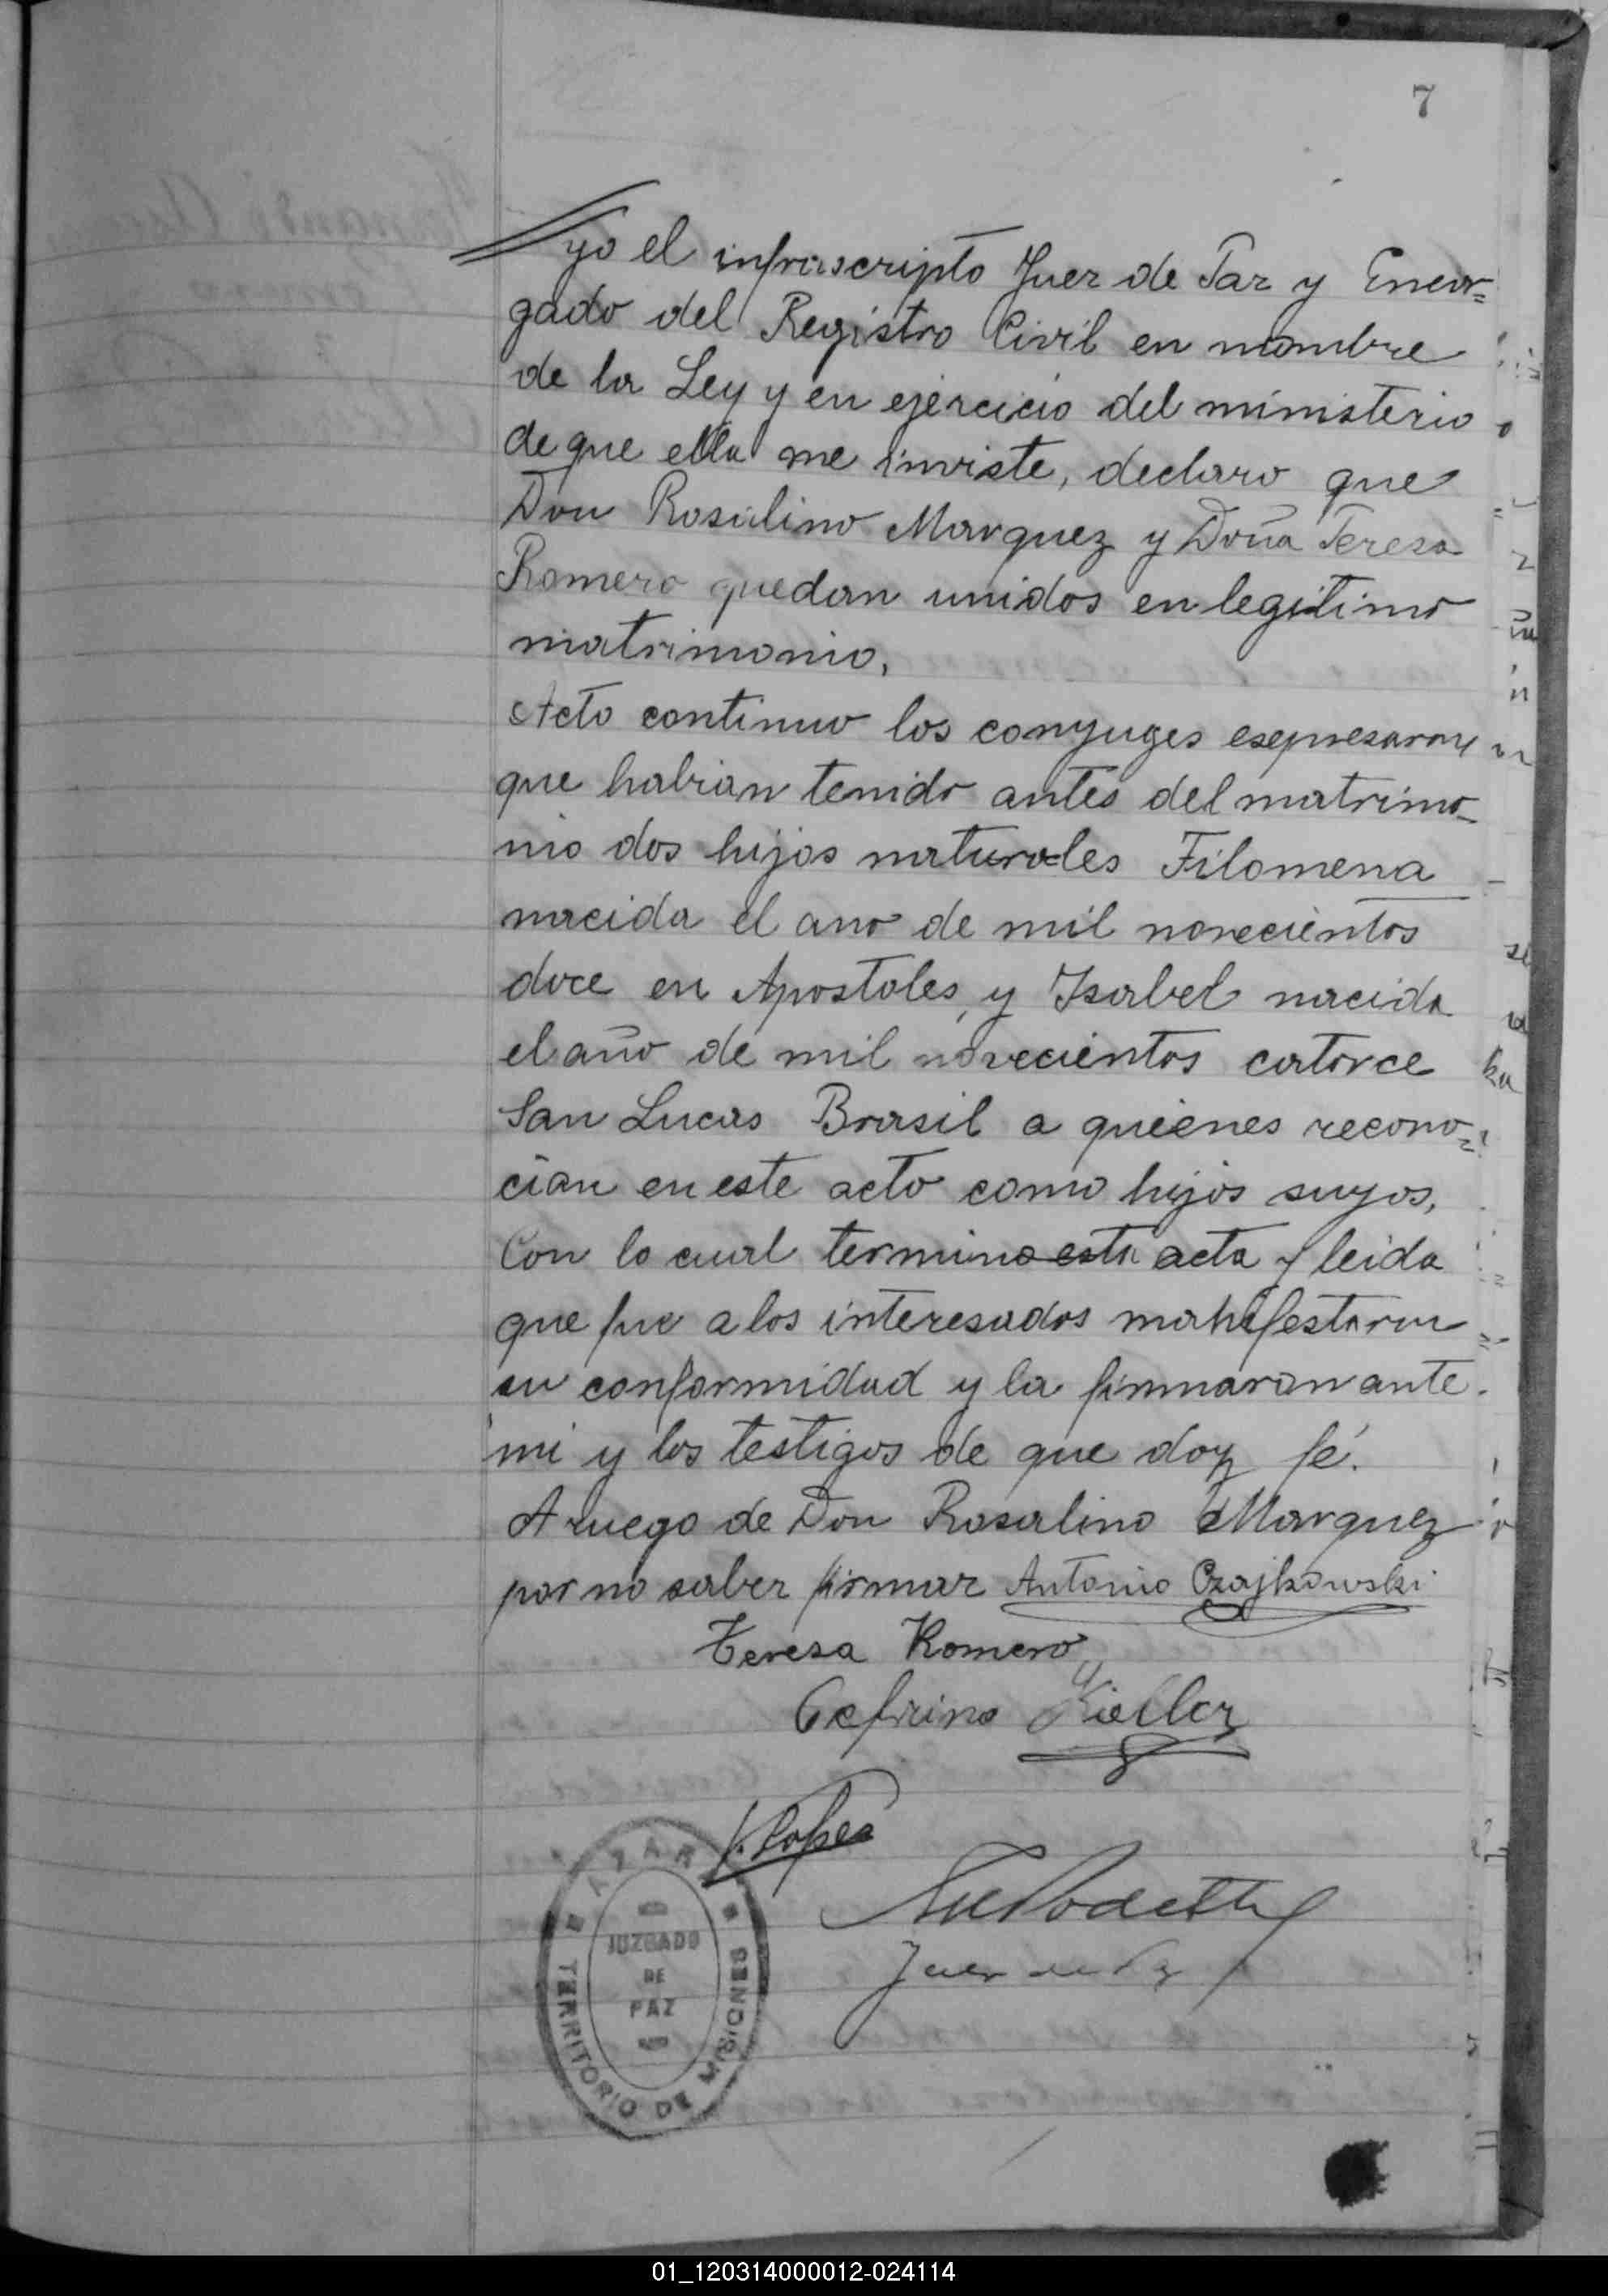 7
yo el infrascripto Juez de Paz y Encar=
gado del Registro Civil en nombre
de la Ley y en ejercicio del ministerio
de que ella me inviste, declaro que
Don Rosalino Marquez y Doña Teresa
Romero quedan unidos en legitimo
matrimonio.
Acto continuo los conyuges esepresaron
que habian tenido antes del matrimo_
nio dos hijos naturales Filomena
nacida el ano de mil novecientos
doce en Apostoles, y Isabel nacida
el año de mil novecientos catorce
San Lucas Brasil a quienes recono=
cian en este acto como hijos suyos,
Con lo cual termino esta acta y leida
que fue a los interesados manifestaron
su conformidad y la firmaron ante
mi y los testigos de que doy fé.
A ruego de Don Rosalino Marquez
por no saber firmar Antonio Czajkowski
Teresa Romero
Ceferino
J. Lopez
Juez de Paz
AZARA
JUZGADO
DE
PAZ
TERRITORIO DE MISIONES
01_120314000012-024114